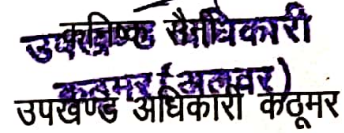 उपखण्ड अधिकारी
कठूमर (अलवर)
उपखण्ड अधिकारी कठूमर